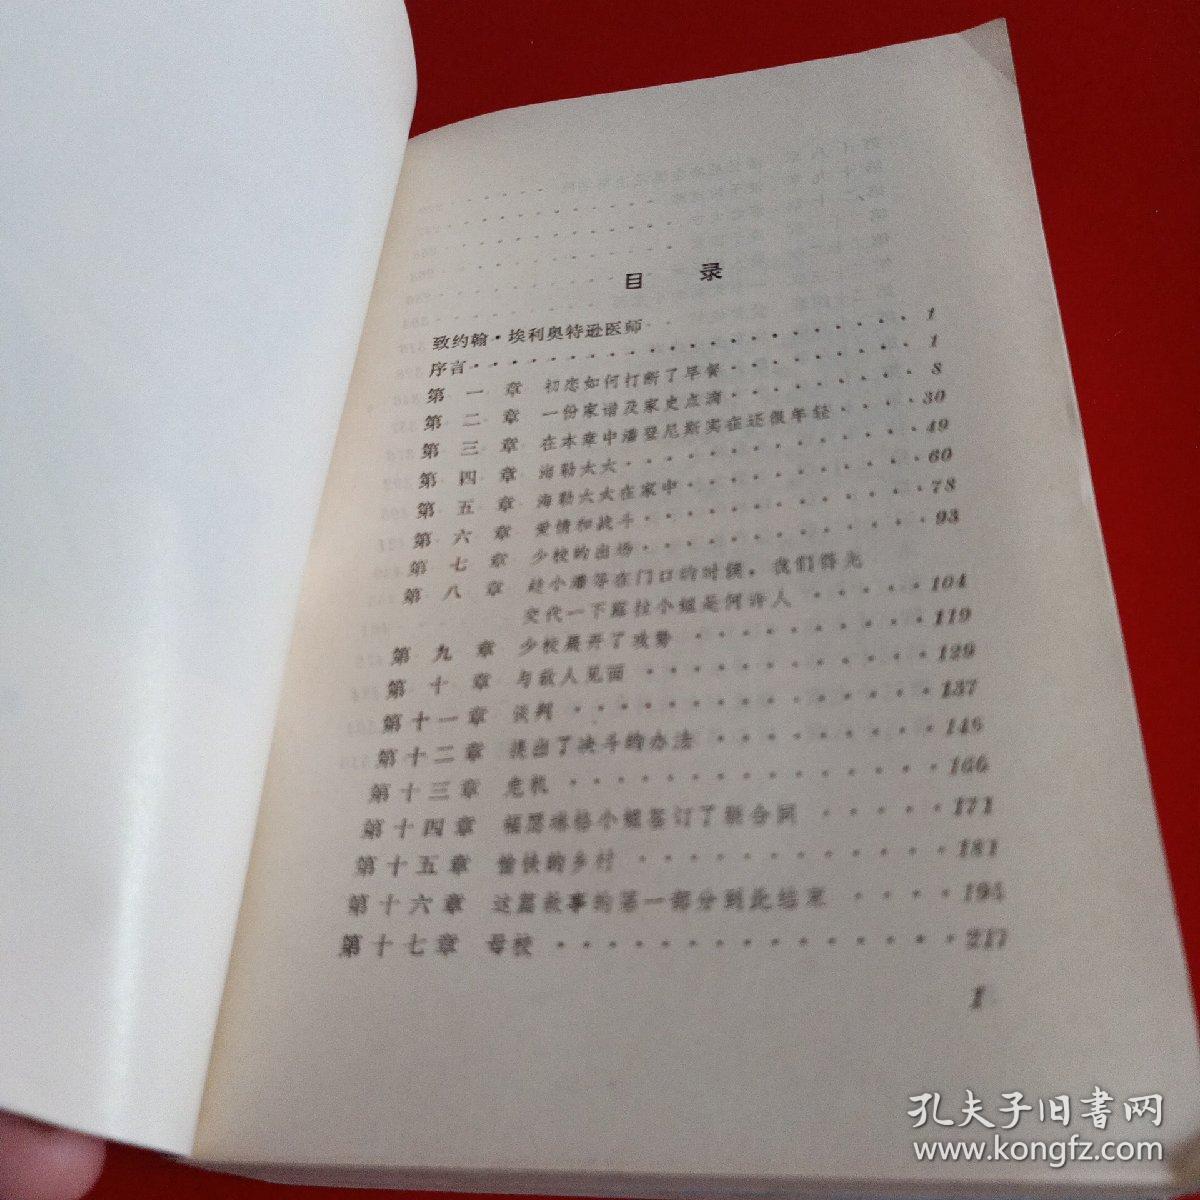 目 录
致约翰·埃利奥特逊医师
序言 1
第一章 初恋如何打断了早餐 1
第二章 一份家谱及家史点滴 8
第三章 在本章中潘登尼斯实在还很年轻 30
第四章 海勒太太 49
第五章 海勒太太在家中 60
第六章 爱情和战斗 78
第七章 少校的出场 93
第八章 趁小潘等在门口的时候，我们得先
交代一下蔻拉小姐是何许人 104
第九章 少校展开了攻势 119
第十章 与敌人见面 129
第十一章 谈判 137
第十二章 提出了决斗的办法 146
第十三章 危机 166
第十四章 小姐签订了新合同 171
第十五章 愉快的乡村 181
第十六章 这篇故事的第一部分到此结束 194
第十七章 母校 217
1
孔夫子旧书网
www.kongfz.com